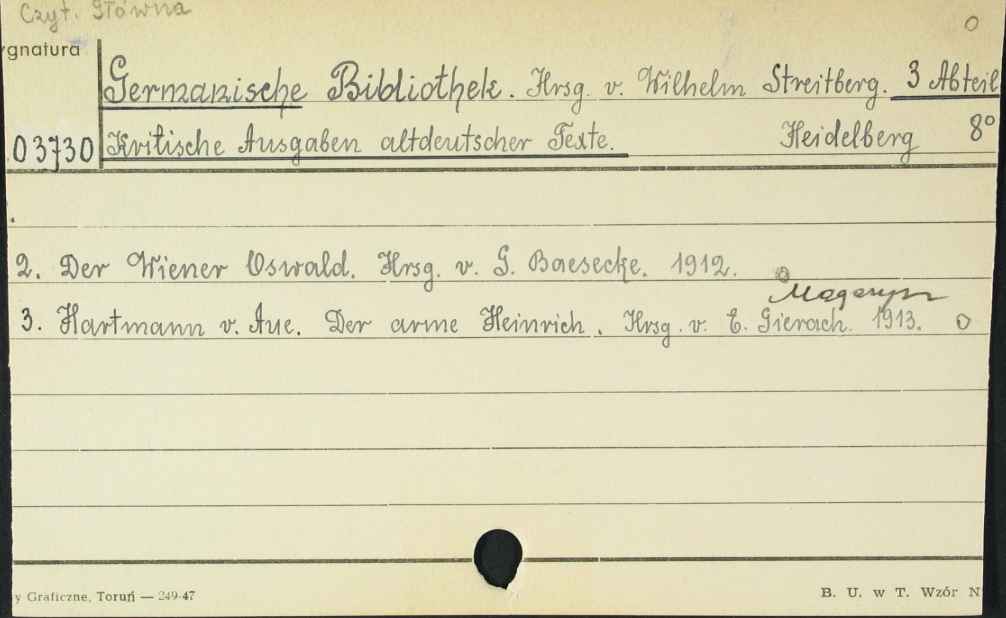 Czyt. Główna
O
ygnatura
Germanische Bibliothek. Hrsg. v. Wilhelm Streitberg. 3 Abteil
03730 Kritische Ausgaben altdeutscher Texte. Heidelberg 8º
2. Der Wiener Oswald. Hrsg. v. G. Baesecke. 1912.
Magazyn
3. Hartmann v. Aue. Der arme Heinrich. Hrsg. v. E. Gierach. 1913. O
y Graficzne, Toruń — 249-47
B. U. w T. Wzór N